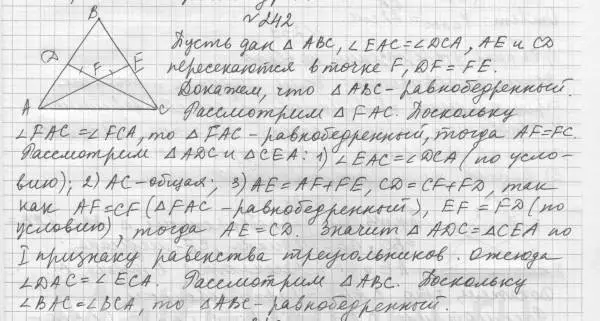 №242
B
Пусть дан △ ABC, ∠EAC=∠DCA, AE и CD
D F E
пересекаются в точке F, DF = FE.
Докажем, что △ABC-равнобедренный.
A C
Рассмотрим △ FAC. Поскольку
∠FAC=∠FCA, то △FAC-равнобедренный, тогда AF=FC.
Рассмотрим △ADC и △CEA: 1) ∠EAC=∠DCA (по усло-
вию); 2) AC-общая; 3) AE=AF+FE, CD=CF+FD, так
как AF=CF (△FAC-равнобедренный), EF=FD (по
условию), тогда AE=CD. Значит △ADC=△CEA по
I признаку равенства треугольников. Отсюда
∠DAC=∠ECA. Рассмотрим △ABC. Поскольку
∠BAC=∠BCA, то △ABC-равнобедренный.